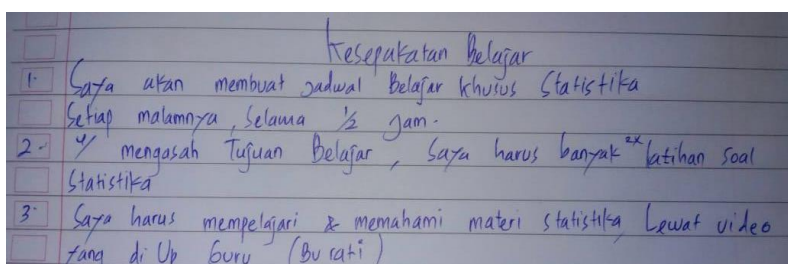 Kesepakatan Belajar
1. Saya akan membuat Jadwal Belajar khusus Statistika
Setiap malamnya, Selama 1/2 Jam.
2. U/ mengasah Tujuan Belajar, Saya harus banyak 2x latihan soal
Statistika
3. Saya harus mempelajari & memahami materi statistika Lewat video
yang di Up Guru (Bu rati)